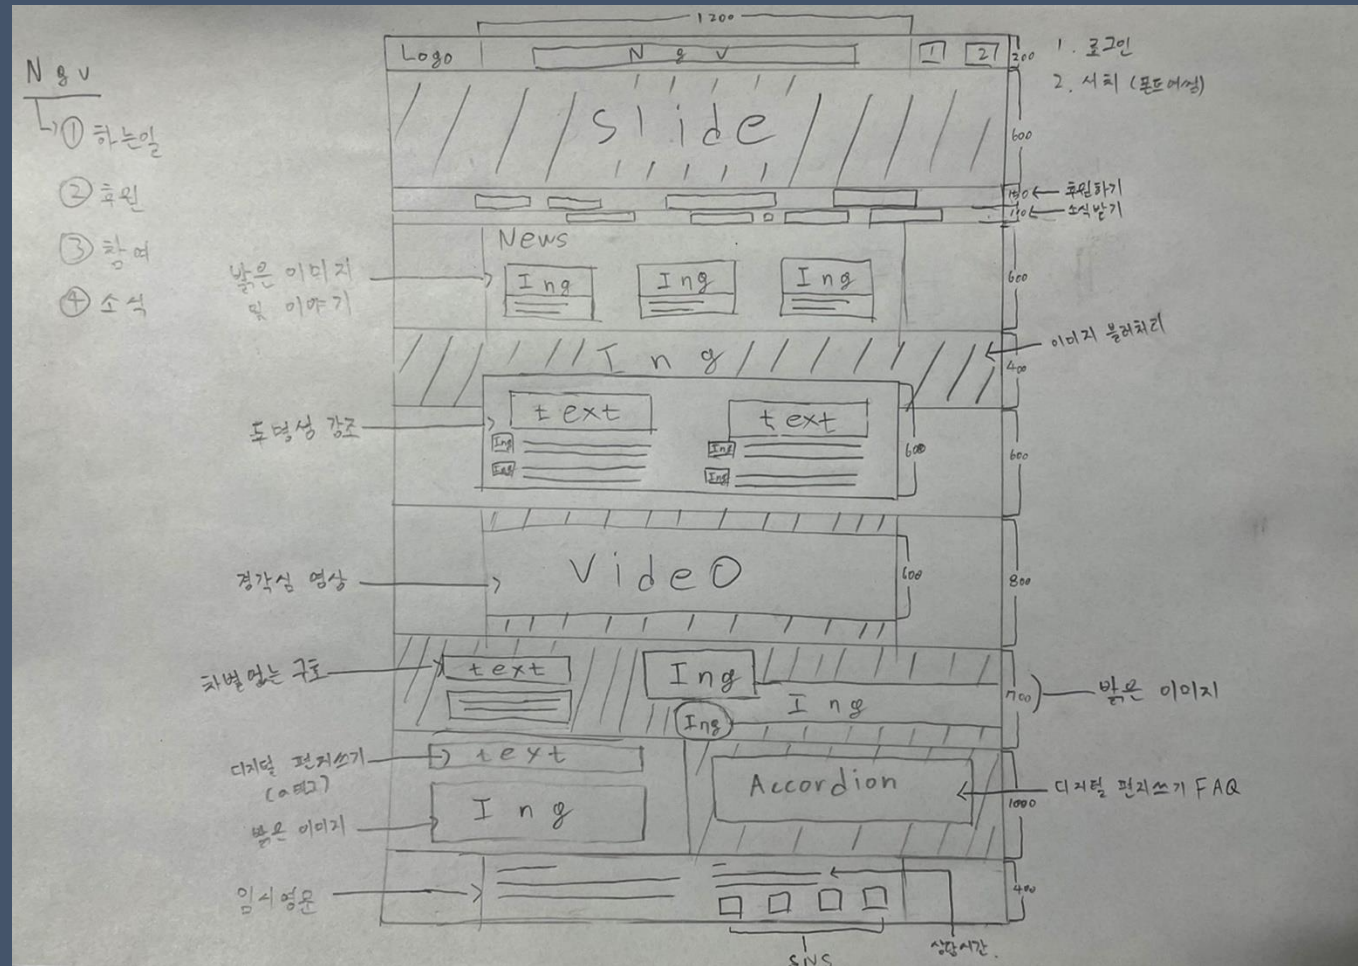 1200
Logo
N g v
1
2
200
1. 로그인
2. 서치 (폰트어썸)
N g v
① 하는일
② 후원
③ 참여
④ 소식
slide
600
후원하기
소식받기
News
밝은 이미지
및 이야기
Ing
Ing
Ing
600
Ing
이미지 블러처리
400
투명성 강조
text
text
Ing
Ing
Ing
Ing
600
600
경각심 영상
Video
600
800
차별없는 구호
text
Ing
Ing
Ing
700
밝은 이미지
디지털 편지쓰기
(a태그)
text
밝은 이미지
Ing
Accordion
디지털 편지쓰기 FAQ
1000
임시영문
400
SNS
상담시간.